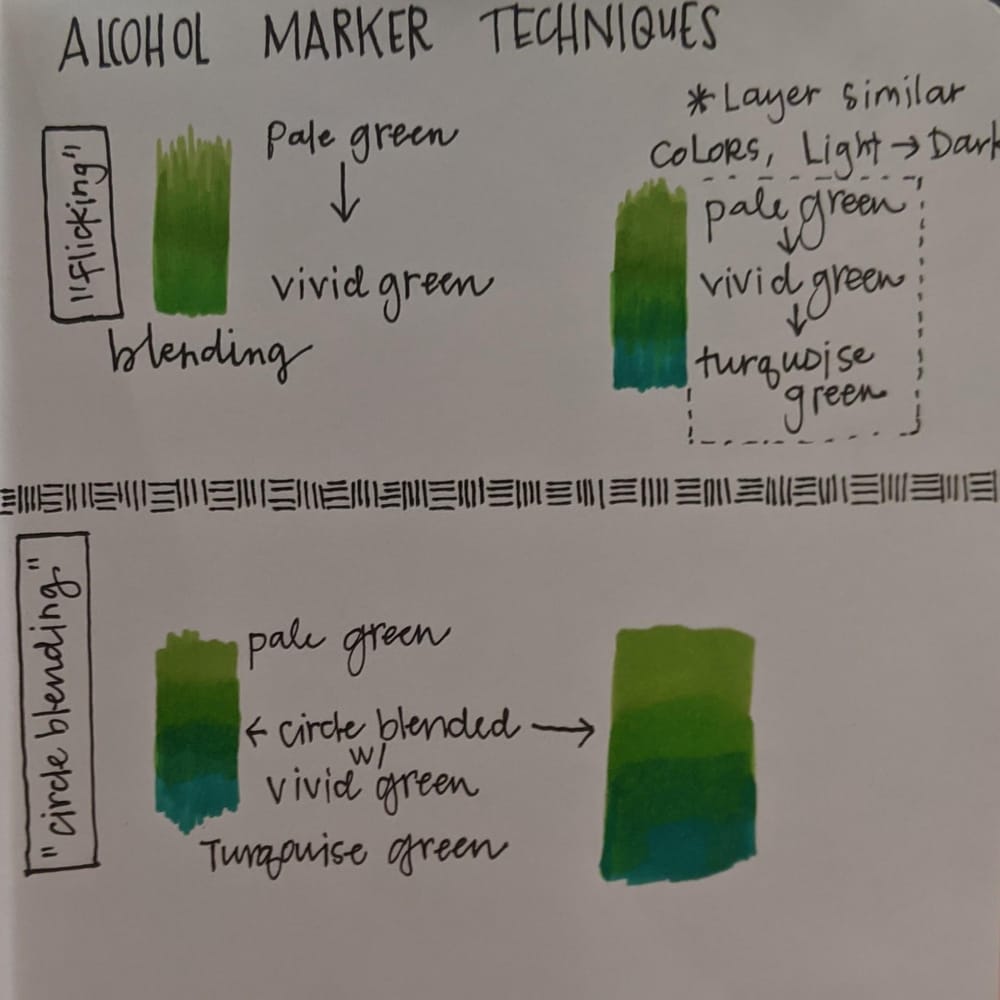 ALCOHOL MARKER TECHNIQUES
"flicking"
blending
pale green
↓
vivid green
*Layer similar
colors, Light → Dark
pale green
↓
vivid green
↓
turquoise
green
"circle blending"
pale green
← circle blended →
w/
vivid green
Turqouise green